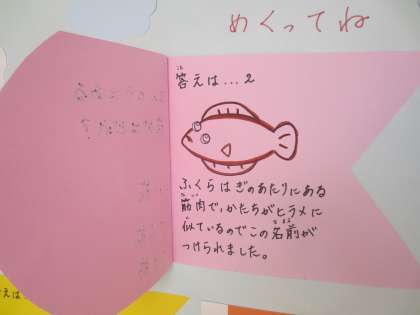 めくってね
答えは…2
ふくらはぎのあたりにある
筋肉で、かたちがヒラメに
似ているのでこの名前が
つけられました。
答えは